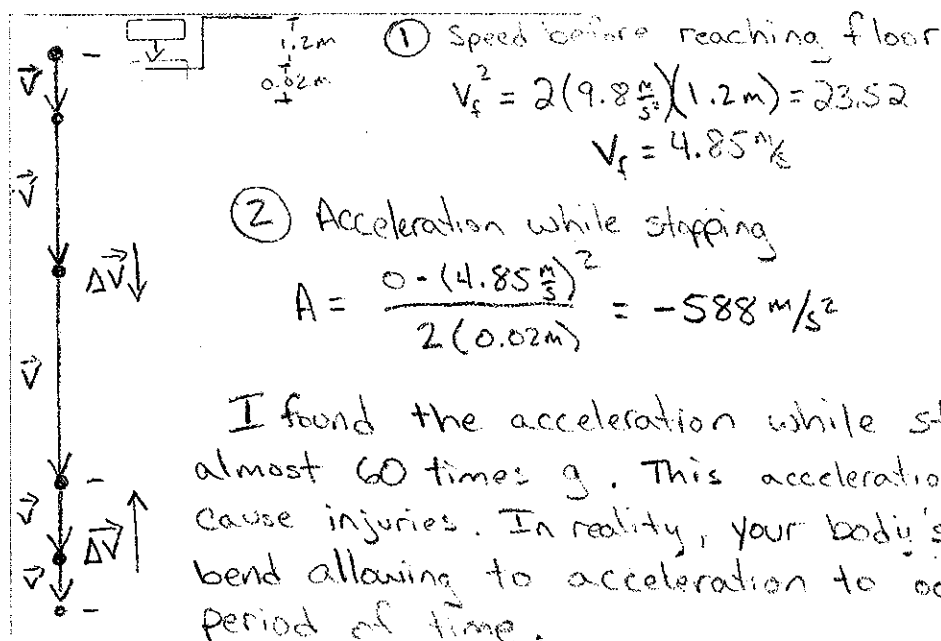 1.2m
0.02m
① Speed before reaching floor
V_f² = 2(9.8 m/s²)(1.2m) = 23.52
V_f = 4.85 m/s
② Acceleration while stopping
A = (0 - (4.85 m/s)²) / (2(0.02m)) = -588 m/s²
I found the acceleration while st
almost 60 times g. This acceleratio
cause injuries. In reality, your body's
bend allowing to acceleration to oc
period of time.
V⃗
V⃗
ΔV⃗↓
V⃗
V⃗
ΔV⃗↑
V⃗